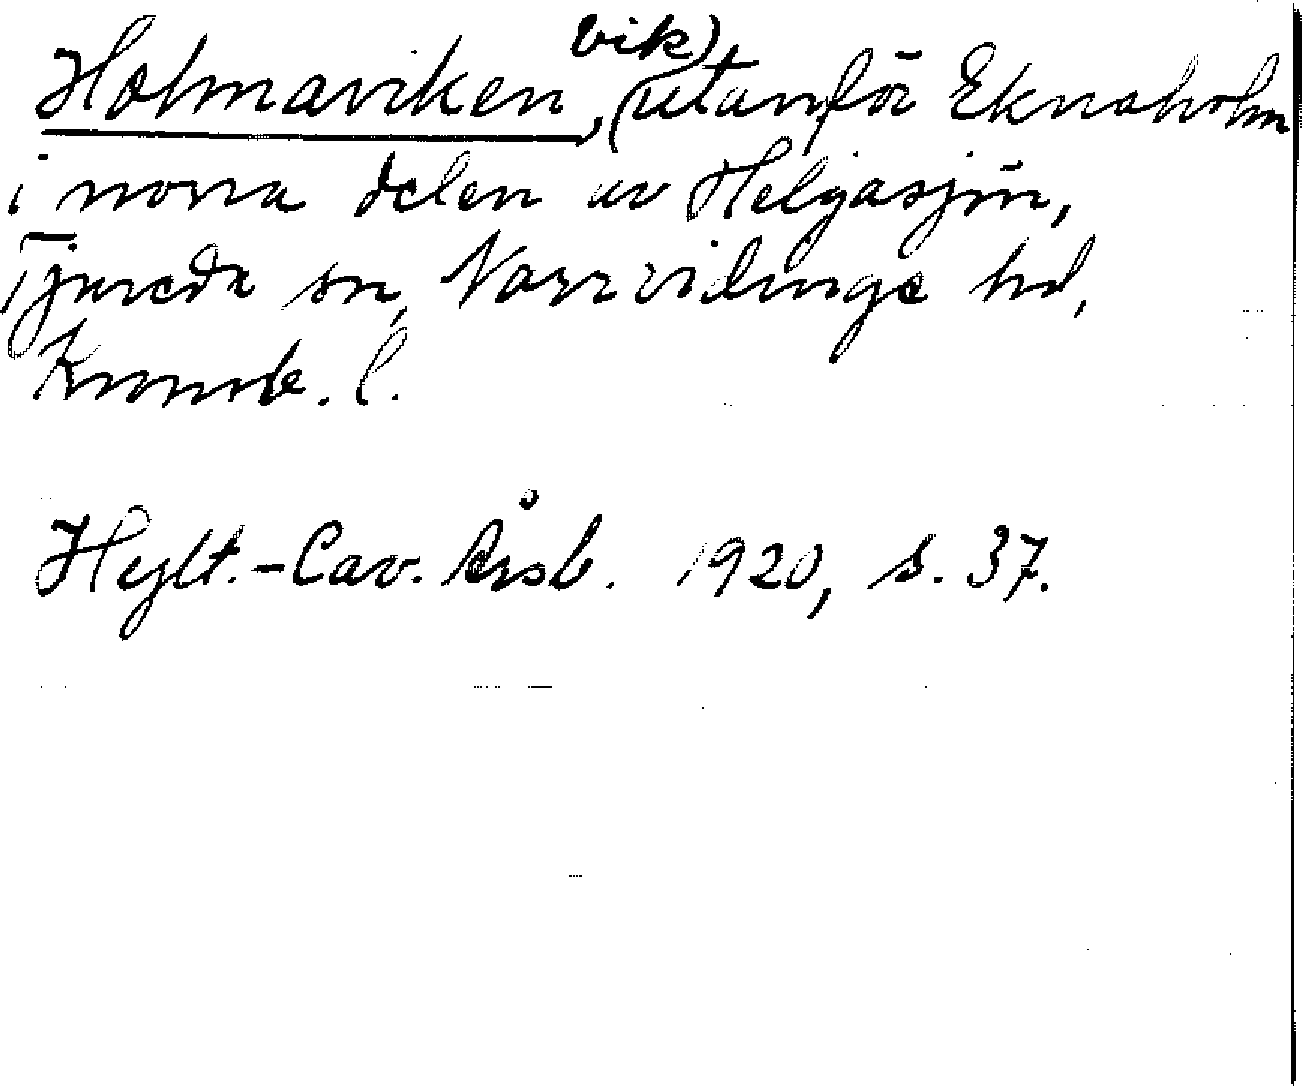 Holmaviken, vik) utanför Eknaholm
i norra delen av Helgasjön,
Tjureda sn, Norrvidinge hd,
Kronob. l.
Hylt.-Cav. Årsb. 1920, s. 37.